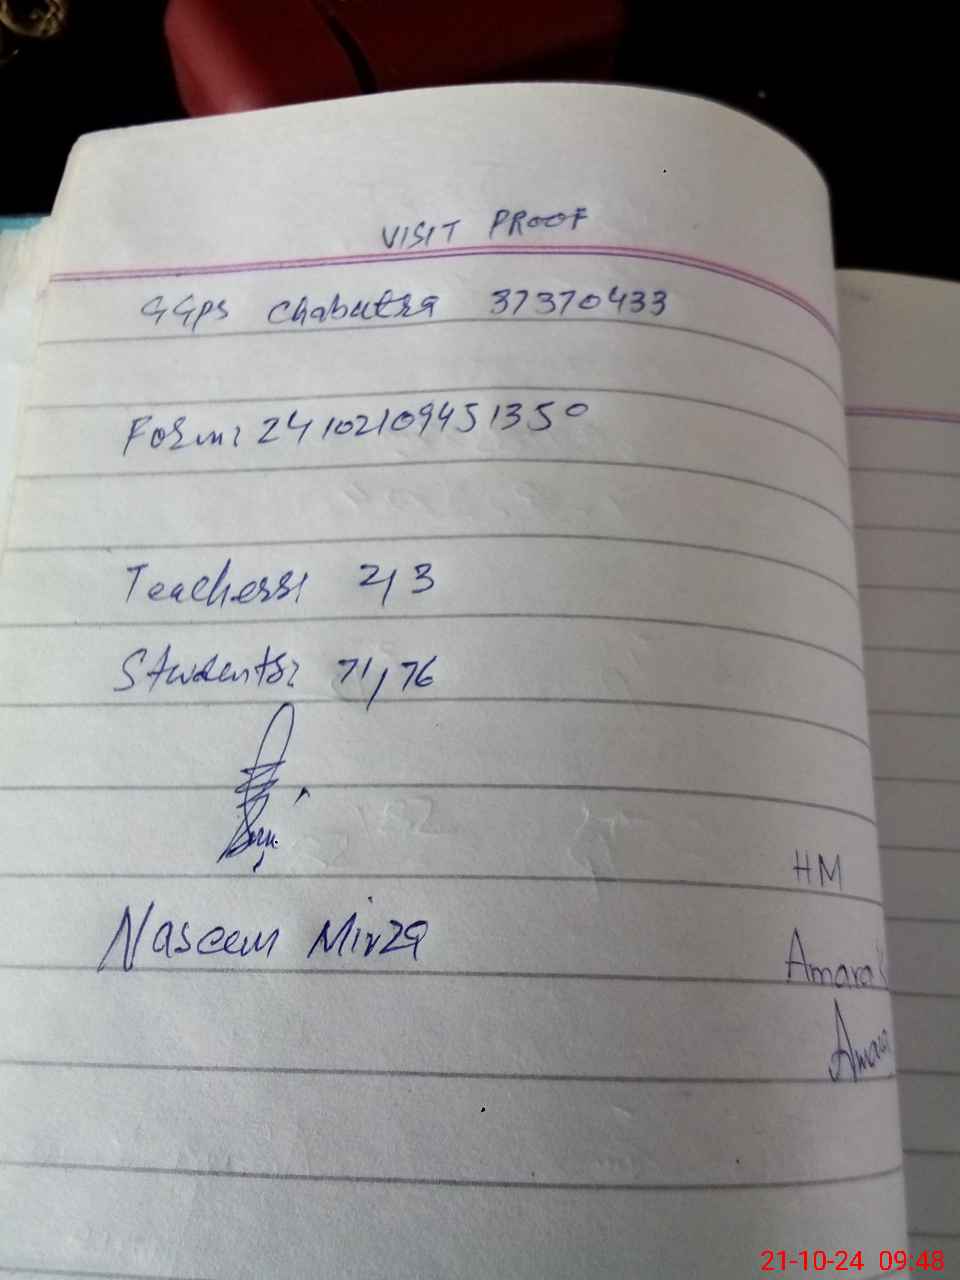 VISIT PROOF
GGPS Chabutra 37370433
Form: 24102109451350
Teachers: 2/3
Students: 71/76
Naseem Mirza
HM
Amara
Amara
21-10-24 09:48